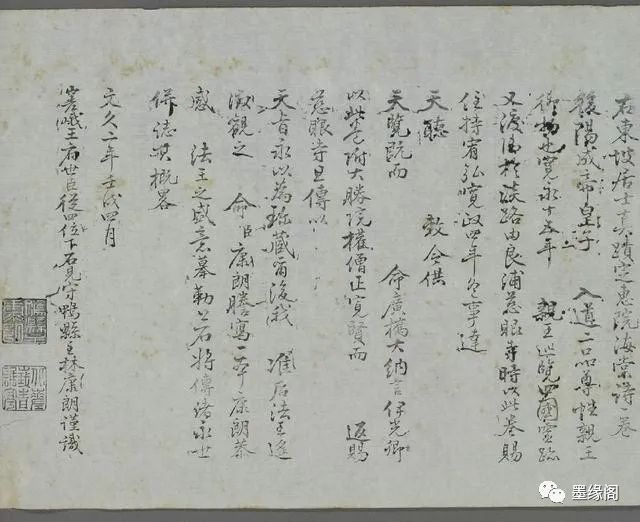 右東坡居士真蹟定惠院海棠詩一卷
後陽成帝皇子 入道二品尊性親王
御物也寬永十五年 親王巡覽四國靈蹤
又渡海於淡路由良浦慈眼寺時以此卷賜
住持宥弘寬政四年冬事達
天聽 敕令供
天覽既而 命廣橋大納言伊光卿
以此卷附大勝院權僧正寬賢而 返賜
慈眼寺且傳以
天旨永以為珍藏爾後我 准后法王遂
徵觀之 命臣康朗謄寫一本康朗恭
感 法王之盛意摹勒上石將傳諸永世
併誌其概畧
文久二年壬戌四月
嵯峨王府世臣從四位下石見守鴨縣主林康朗謹識
墨缘阁